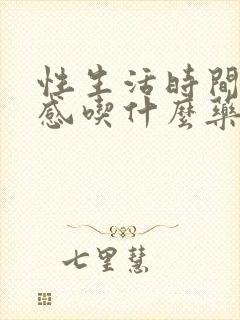 性生活時間
感喫什麼藥
七里慧